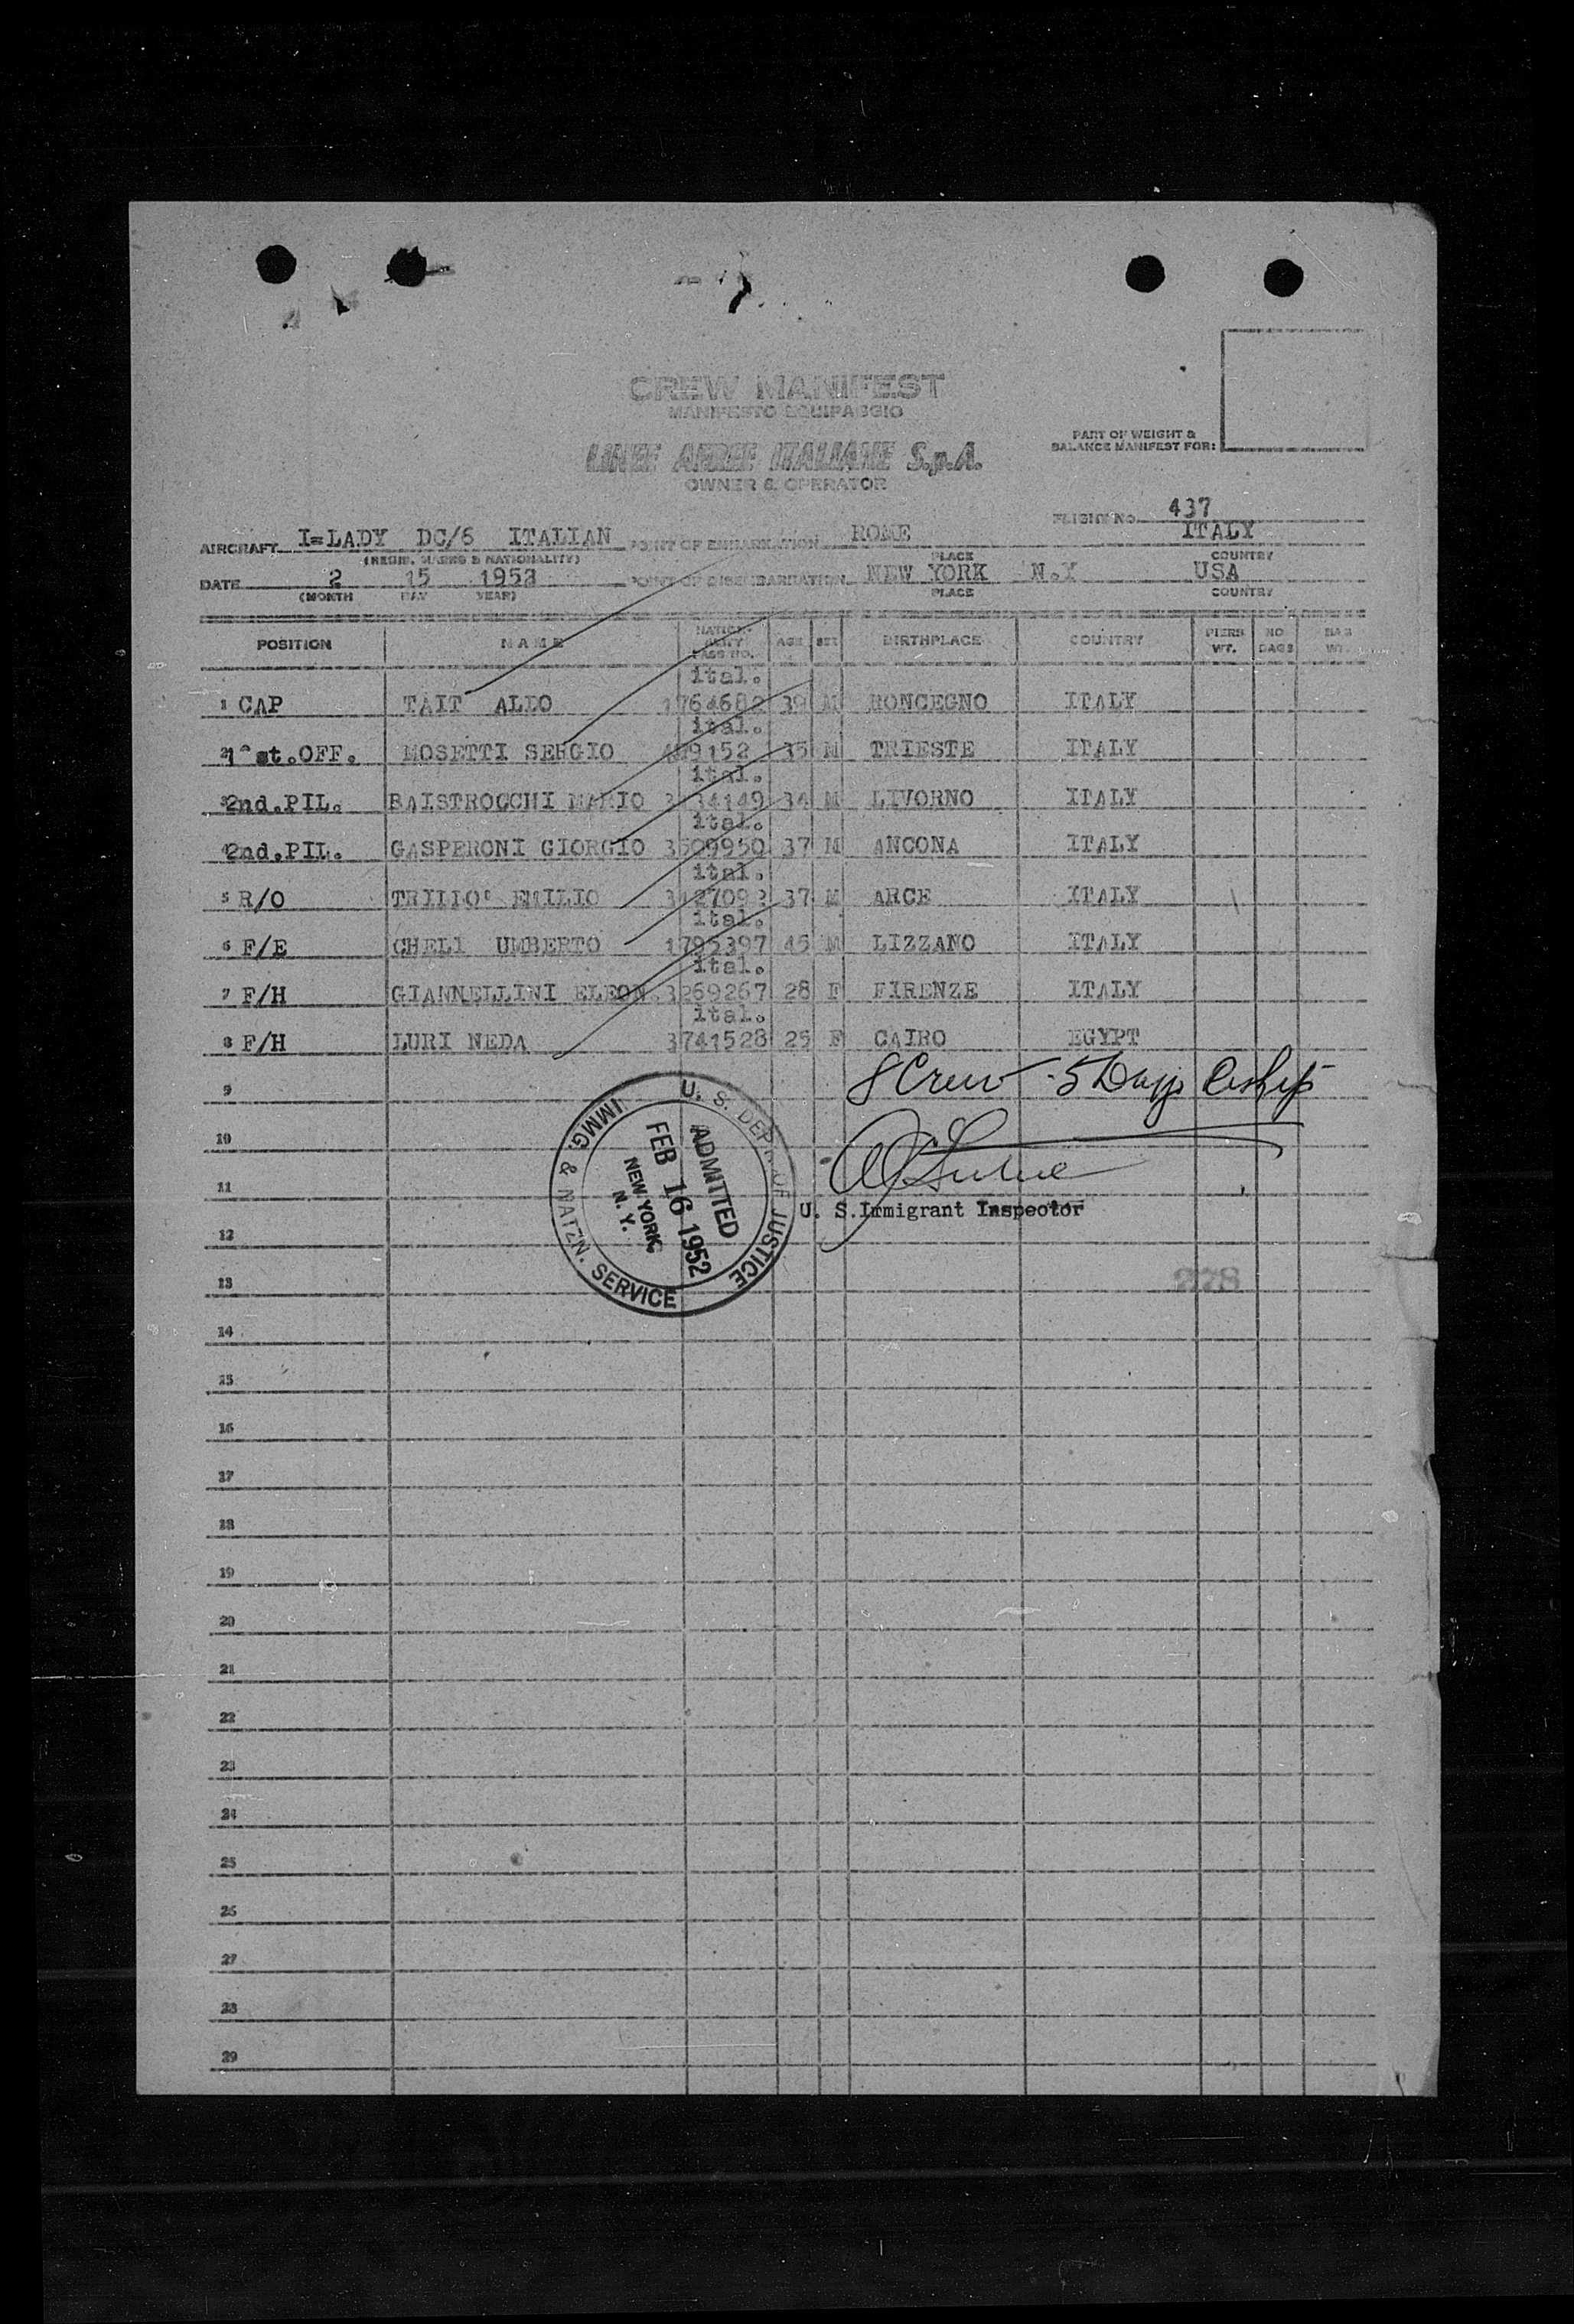 CREW MANIFEST
MANIFESTO EQUIPAGGIO
LINEE AEREE ITALIANE S.p.A.
OWNER & OPERATOR
PART OF WEIGHT &
BALANCE MANIFEST FOR:
FLIGHT NO. 437
AIRCRAFT I=LADY DC/6 ITALIAN POINT OF EMBARKATION ROME ITALY
(REGIS. MARKS & NATIONALITY) PLACE COUNTRY
DATE 2 15 1952 POINT OF DISEMBARKATION NEW YORK N.Y USA
(MONTH DAY YEAR) PLACE COUNTRY
POSITION NAME NATION-ALITY PASS NO. AGE SEX BIRTHPLACE COUNTRY PIERS WT. NO BAGS BAG WT.
ital.
1 CAP TAIT ALDO 1764682 39 M RONCEGNO ITALY
ital.
1°st.OFF. MOSETTI SERGIO 35 M TRIESTE ITALY
ital.
2nd.PIL. BAISTROCCHI MARIO 34 M LIVORNO ITALY
ital.
2nd.PIL. GASPERONI GIORGIO 3509950 37 M ANCONA ITALY
ital.
5 R/O EMILIO 37 M ARCE ITALY
ital.
6 F/E CHELI UMBERTO 1795397 45 M LIZZANO ITALY
ital.
7 F/H GIANNELLINI ELEON. 3269267 28 F FIRENZE ITALY
ital.
8 F/H LURI NEDA 3741528 25 F CAIRO EGYPT
8 Crew - 5 Days
9
10
11
U. S. Immigrant Inspector
12
13
278
U. S. DEPT. OF JUSTICE
IMMG. & NATZN. SERVICE
ADMITTED
FEB 16 1952
NEW YORK,
N. Y.
14
15
16
17
18
19
20
21
22
23
24
25
26
27
28
29